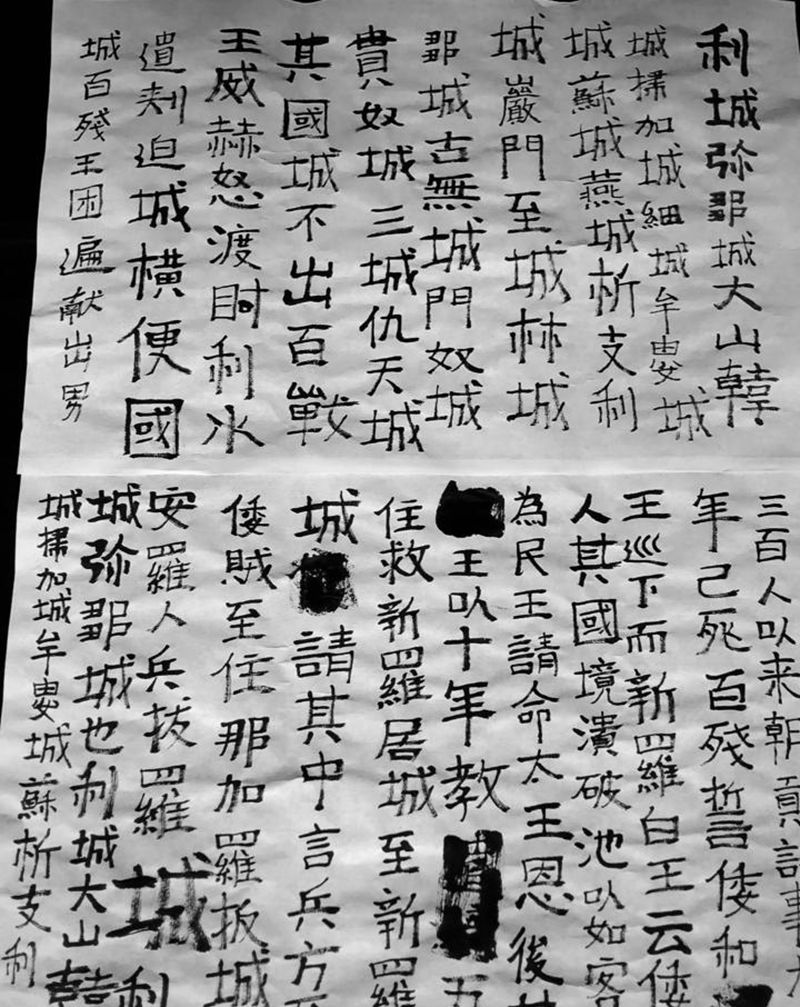 利城弥鄒城大山韓
城掃加城細城牟婁城
城蘇城燕城析支利
城巖門至城林城
鄒城古無城門奴城
貴奴城三城仇天城
其國城不出百戰
王威赫怒渡利水
遣刾迫城橫便國
城百殘王困遍献出男
三百人以来朝貢
年己死百殘誓倭和
王巡下而新羅白王云倭
人其國境潰破池以如客
為民王請命太王恩後
王以十年教 五
住救新羅居城至新羅
城 請其中言兵方
倭賊至住那加羅扳城
安羅人兵拔羅城
城弥鄒城也利城大山韓
城掃加城牟婁城蘇析支利